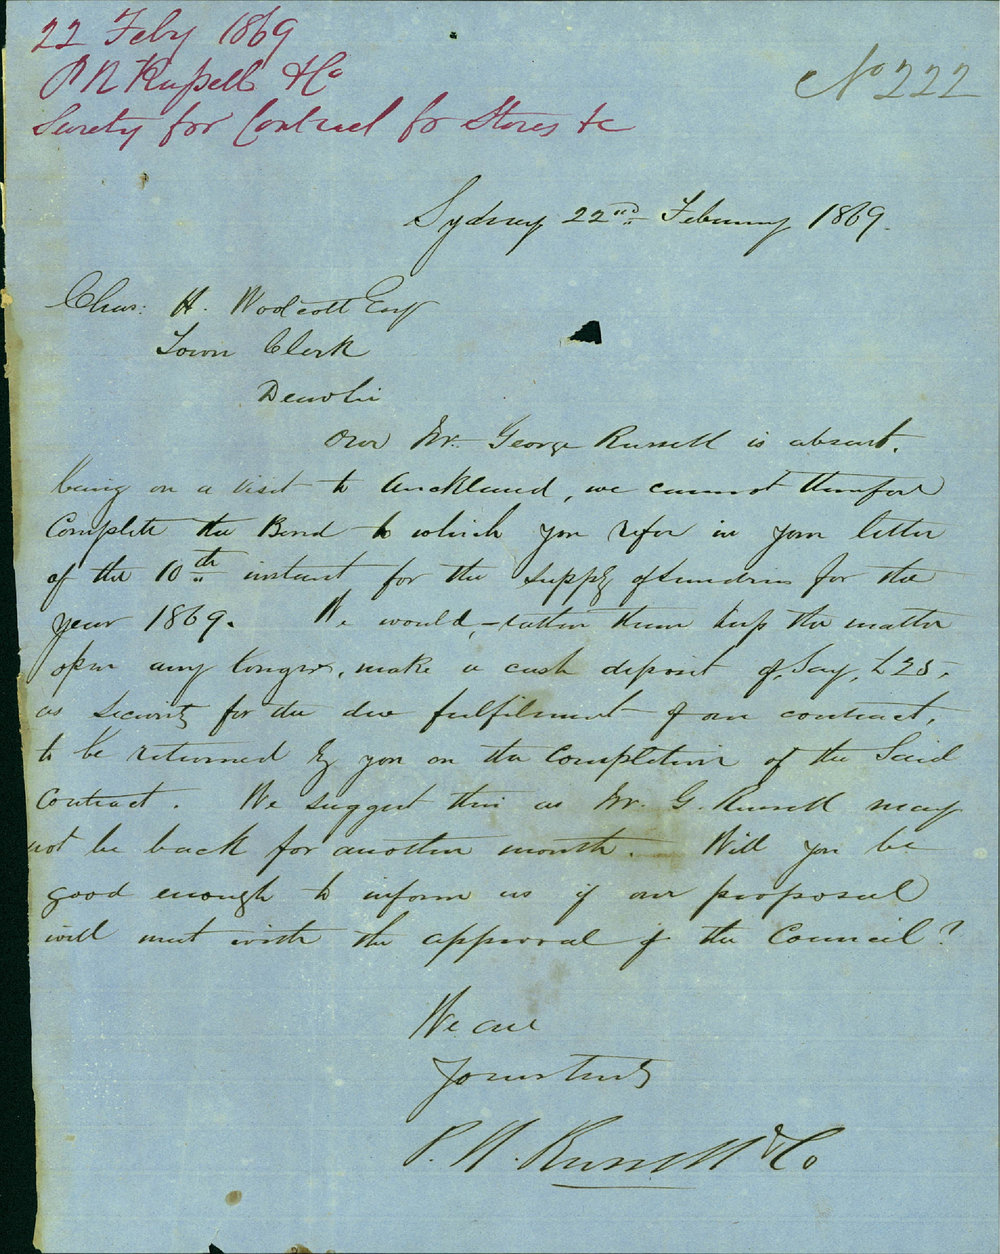 22 Feby 1869
P N Russell & Co
Surety for Contract for Stores &c
No 222
Sydney 22nd February 1869.
Chas: H. Woolcott Esq
Town Clerk
Dear Sir
Our Mr. George Russell is absent,
being on a visit to Auckland, we cannot therefore
Complete the Bond to which you refer in your letter
of the 10th instant for the supply of sundries for the
year 1869. We would, – rather than keep the matter
open any longer, make a cash deposit of, say, £25,
as security for the due fulfilment of our contract,
to be returned by you on the completion of the said
contract. We suggest this as Mr. G. Russell may
not be back for another month. Will you be
good enough to inform us if our proposal
will meet with the approval of the Council?
We are
Yours truly
P. N. Russell & Co